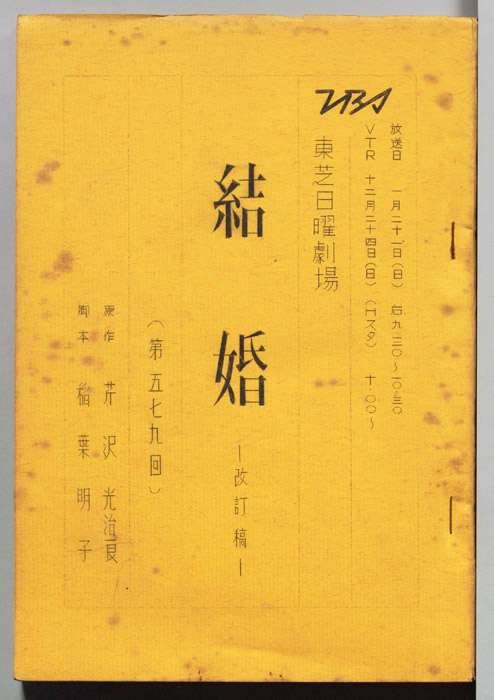 放送日 一月二十一日(日) 后九・三〇〜一〇・三〇
VTR 十二月二十四日(日) (Hスタ) 十・〇〇〜
TBS
東芝日曜劇場
結婚
―改訂稿―
(第五七九回)
原作 芹沢光治良
脚本 稲葉明子